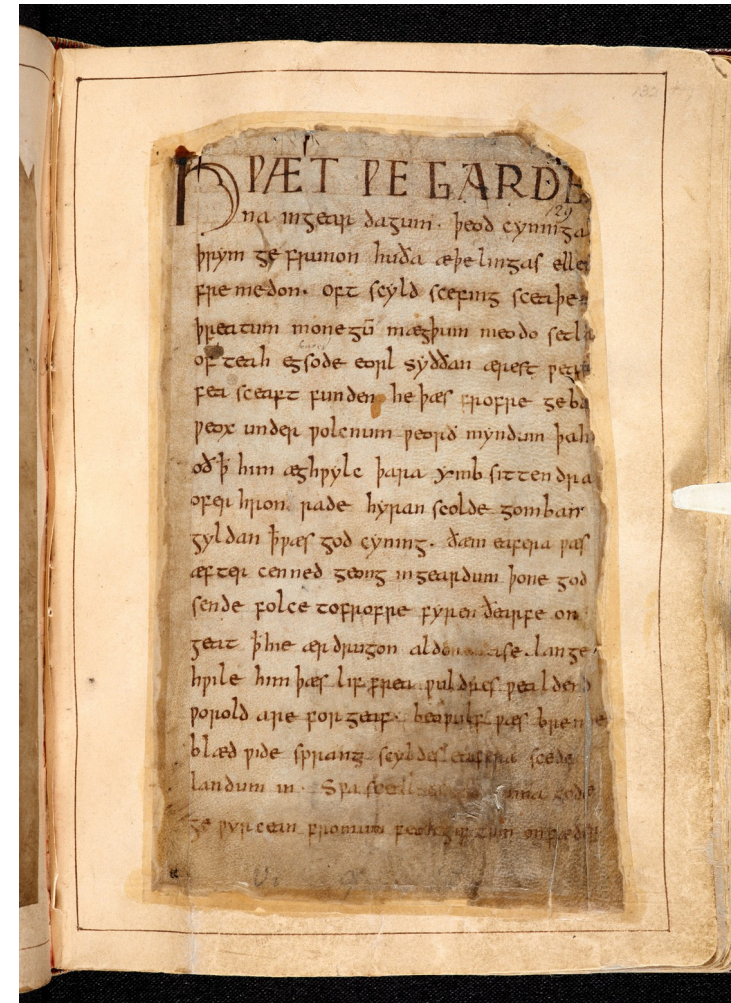 HǷÆT ǷE GARDE
na ingear dagum. þeod cyninga
þrym ge frunon huða æþelingas elle
fre medon. oft scyld scefing sceaþe
þreatum monegū mægþum meodo setla
of teah egsode eorl syððan ærest ƿear
fea sceaft funden he þæs frofre geba
ƿeox under ƿolcnum ƿeorð myndum þah
oð ꝥ him æghƿylc þara ymb sittendra
ofer hron rade hyran scolde gomban
gyldan ꝥ ƿæs god cyning. ðæm eafera ƿæs
æfter cenned geong ingeardum þone god
sende folce tofrofre fyren ðearfe on
geat ꝥ hie ær drugon lange
hƿile him þæs lif frea ƿuldres ƿealdend
ƿorold are for geaf. beoƿulf ƿæs breme
blæd ƿide sprang scyldes eafera scede
landum in. Sƿa gode
ge ƿyrcean fromum feoh giftum on fæder
129
132